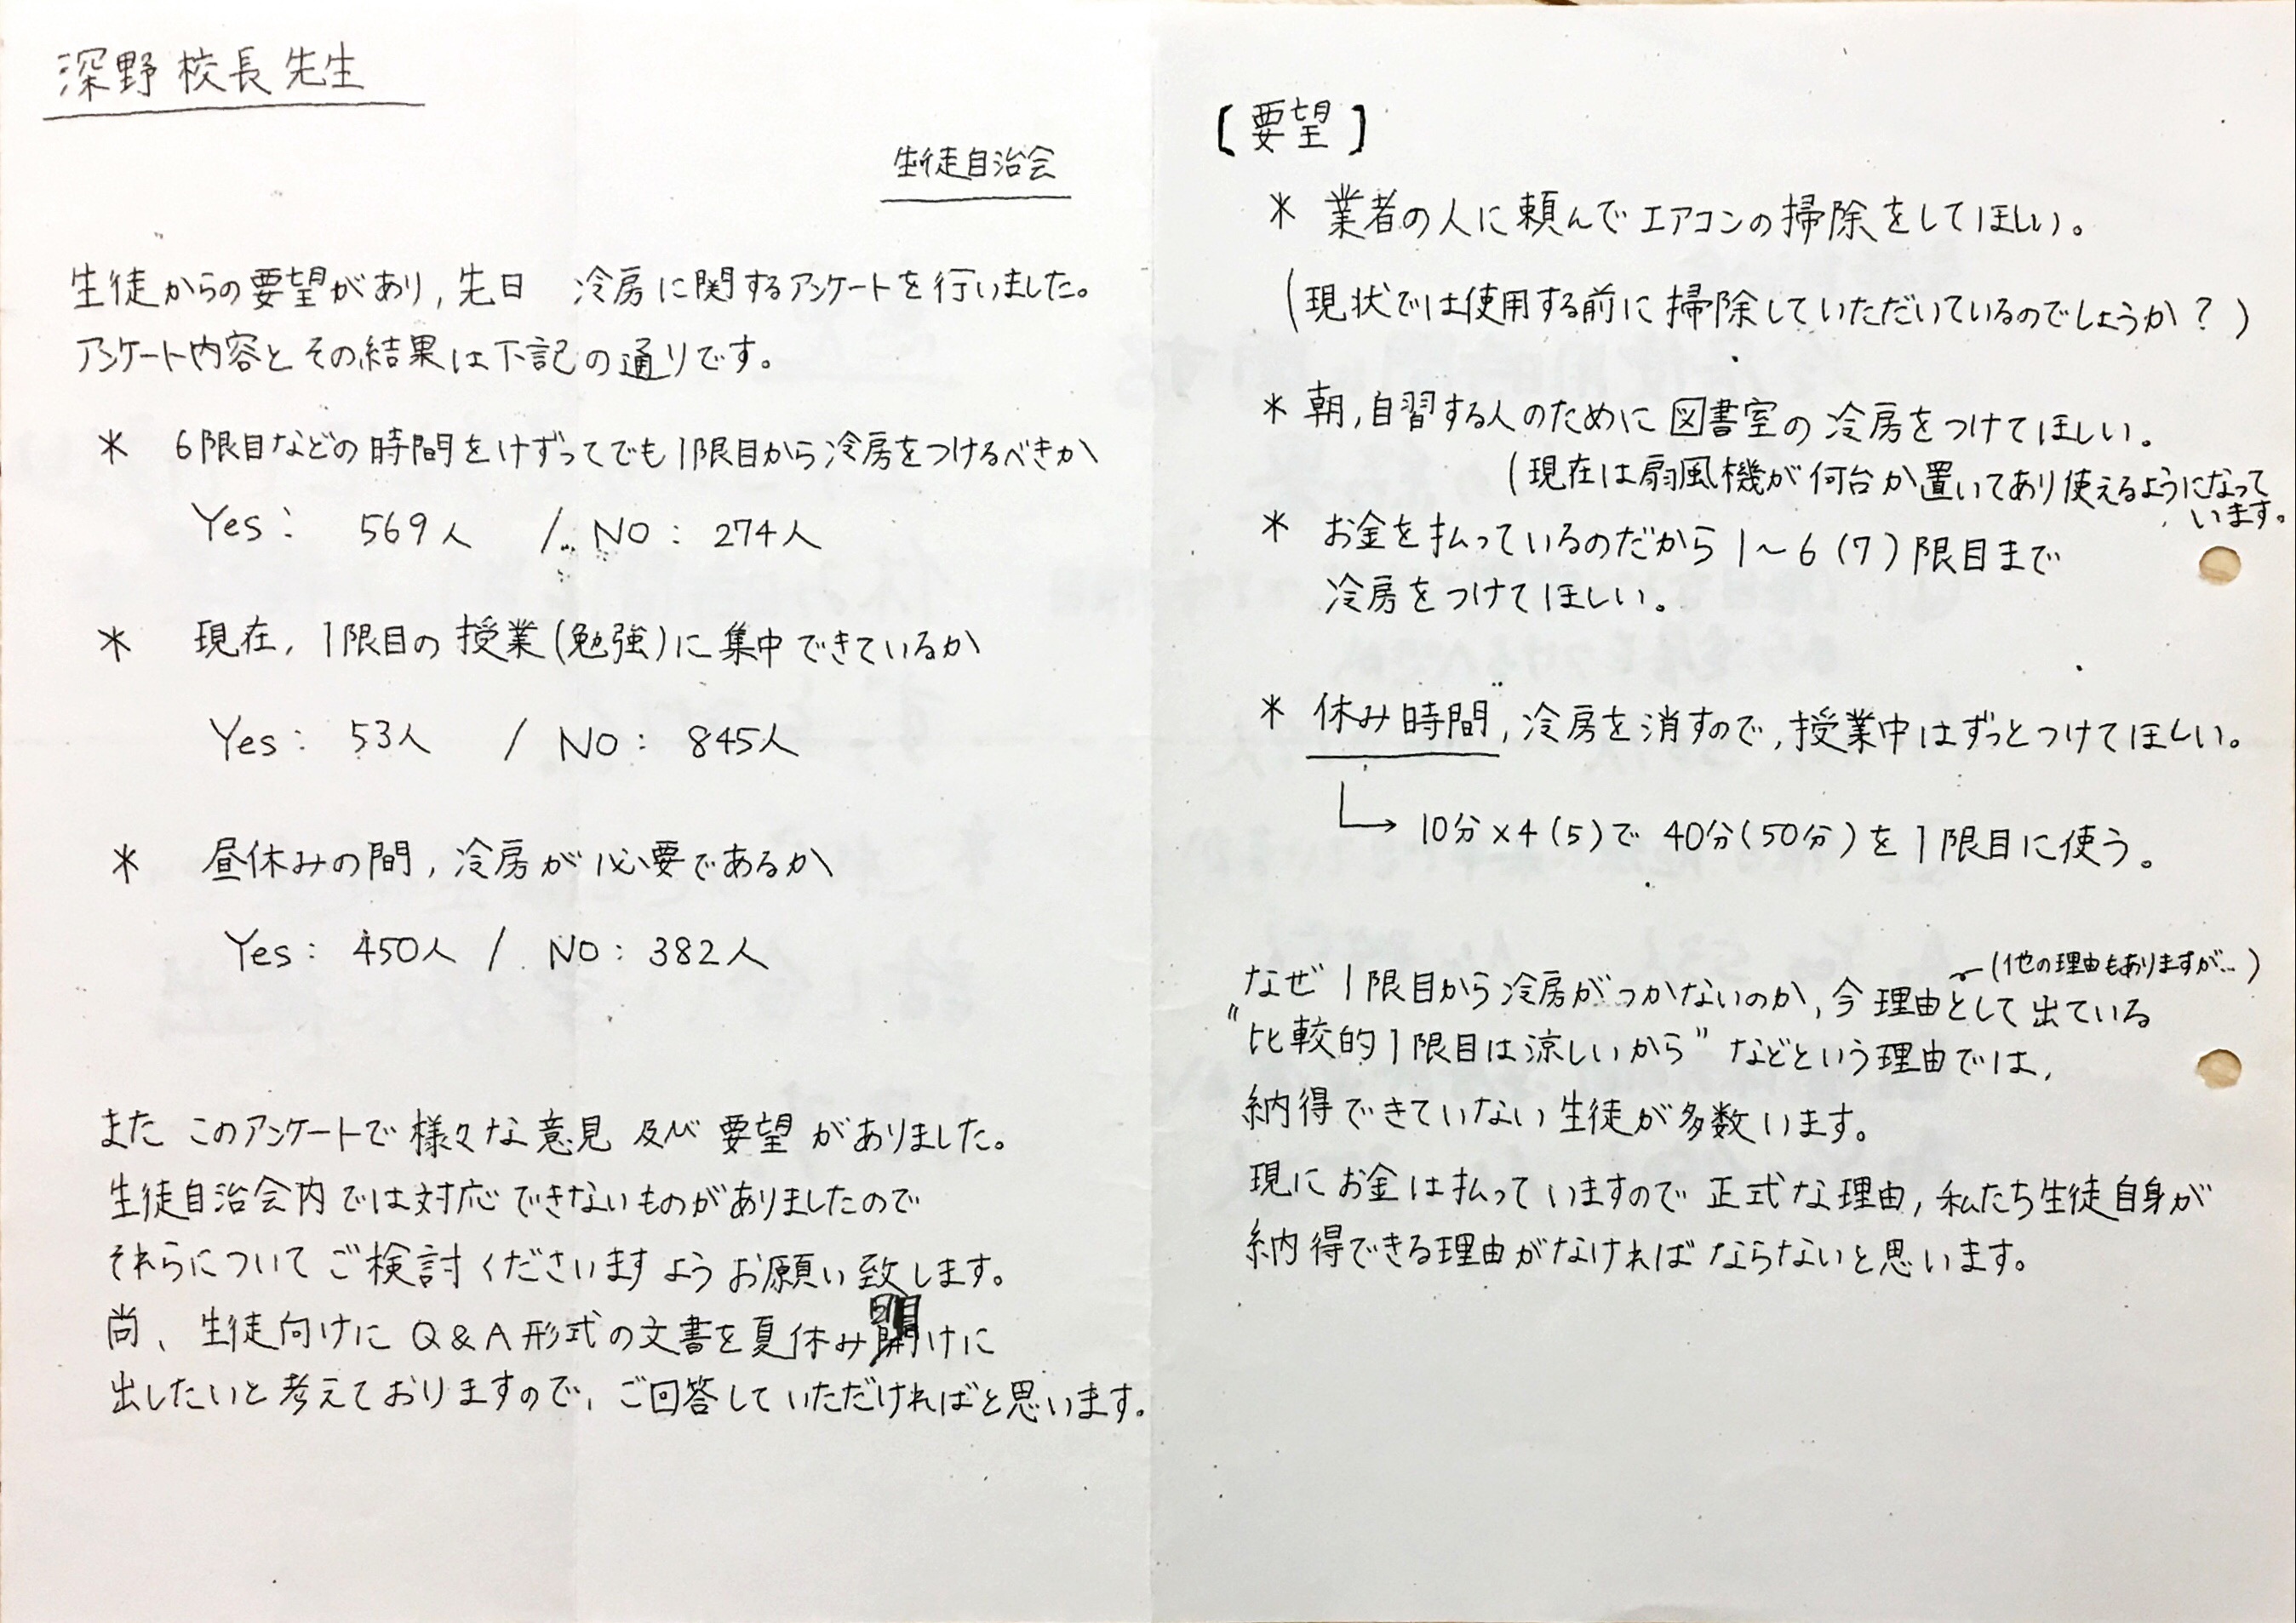 深野校長先生
生徒自治会
生徒からの要望があり,先日 冷房に関するアンケートを行いました。
アンケート内容とその結果は下記の通りです。
* 6限目などの時間をけずってでも1限目から冷房をつけるべきか
Yes: 569人 / NO: 274人
* 現在,1限目の授業(勉強)に集中できているか
Yes: 53人 / NO: 845人
* 昼休みの間,冷房が必要であるか
Yes: 450人 / NO: 382人
また このアンケートで様々な意見 及び 要望がありました。
生徒自治会内では対応できないものがありましたので
それらについてご検討くださいますようお願い致します。
尚、生徒向けにQ&A形式の文書を夏休み明けに
出したいと考えておりますので,ご回答していただければと思います。
[要望]
* 業者の人に頼んでエアコンの掃除をしてほしい。
(現状では使用する前に掃除していただいているのでしょうか?)
* 朝,自習する人のために図書室の冷房をつけてほしい。
(現在は扇風機が何台か置いてあり使えるようになって
います。
* お金を払っているのだから1〜6(7)限目まで
冷房をつけてほしい。
* 休み時間,冷房を消すので,授業中はずっとつけてほしい。
→ 10分×4(5)で40分(50分)を1限目に使う。
(他の理由もありますが…)
なぜ1限目から冷房がつかないのか,今理由として出ている
"比較的1限目は涼しいから"などという理由では,
納得できていない生徒が多数います。
現にお金は払っていますので正式な理由,私たち生徒自身が
納得できる理由がなければならないと思います。